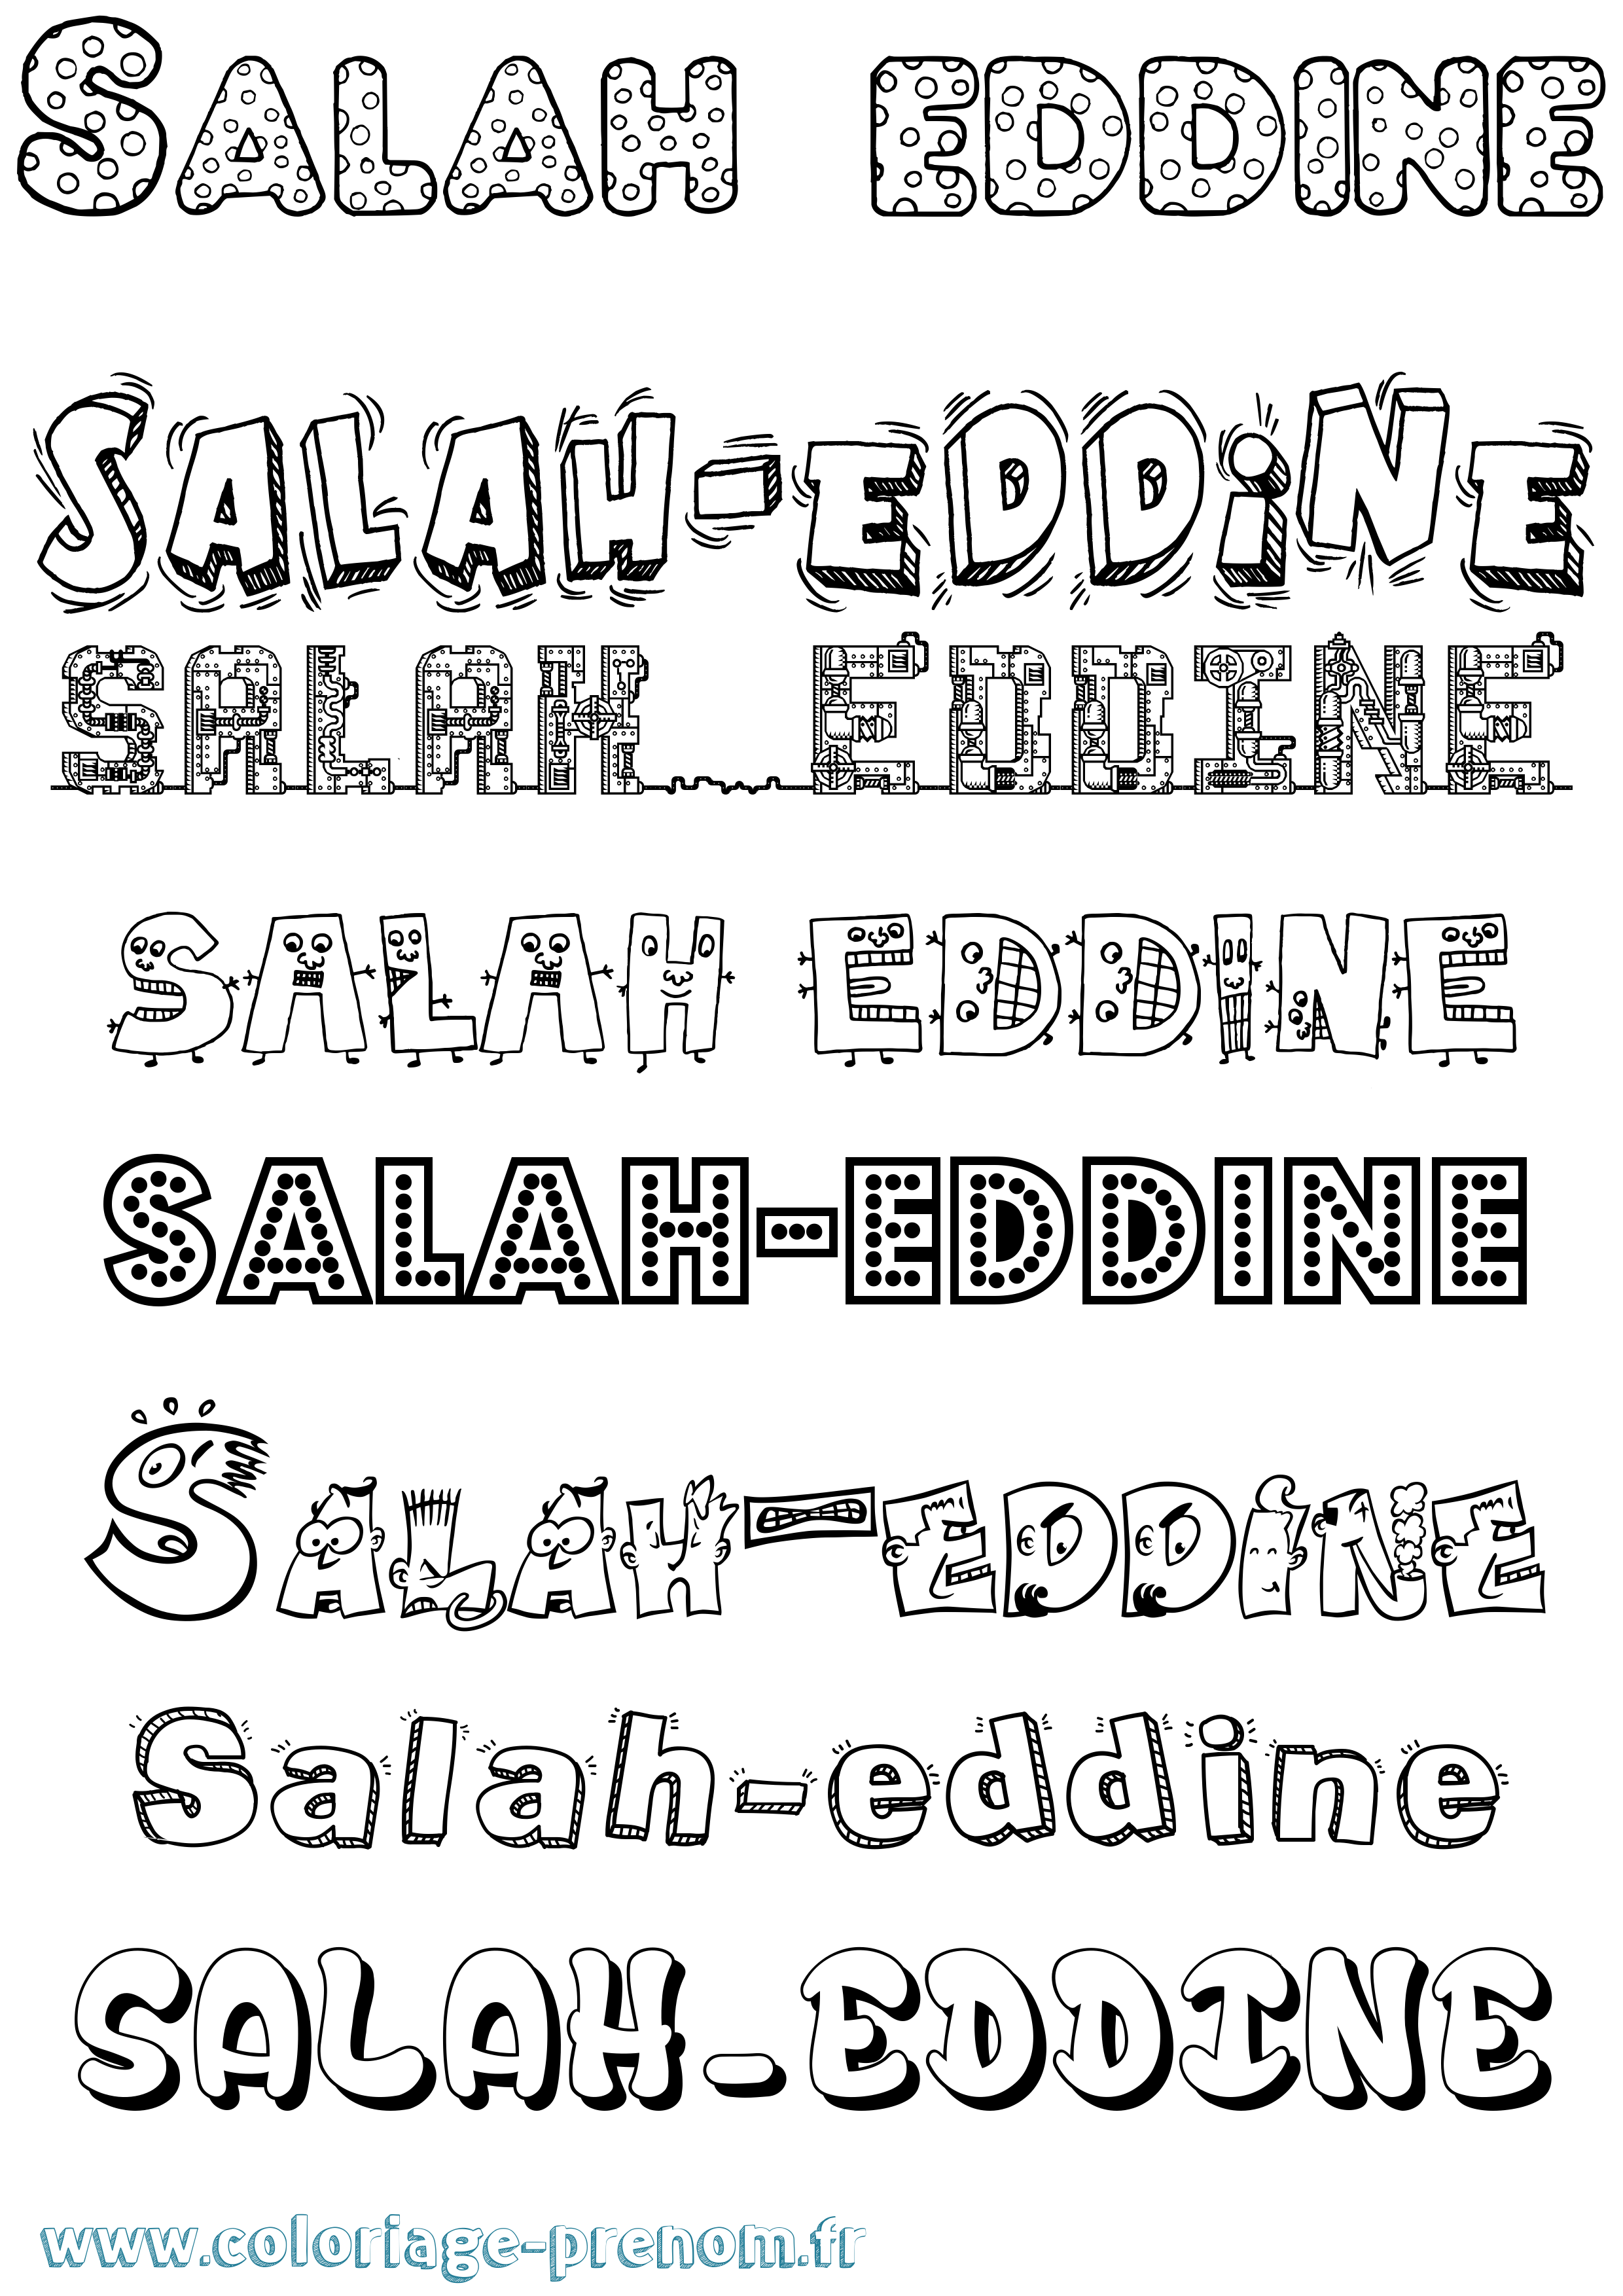 SALAH EDDINE
SALAH-EDDiNE
SALAH EDDINE
SALAH EDDINE
SALAH-EDDINE
SALAH-EDDINE
Salah-eddine
SALAH-EDDINE
www.coloriage-prenom.fr